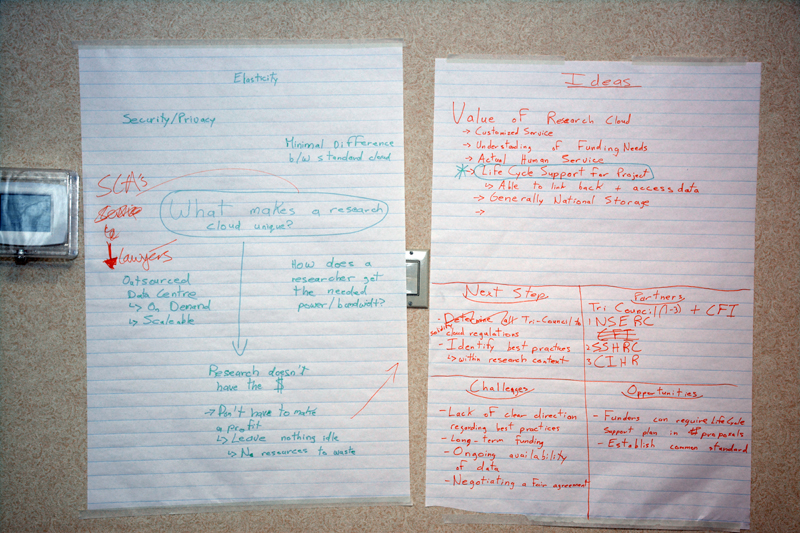 Elasticity
Security/Privacy
Minimal Difference
b/w standard cloud
SLA's
to
lawyers
What makes a research
cloud unique?
Outsourced
Data Centre
↳ On Demand
↳ Scaleable
How does a
researcher get
the needed
power/bandwidt?
Research doesn't
have the $
→ Don't have to make
a profit
↳ Leave nothing idle
↳ No resources to waste
Ideas
Value of Research Cloud
→ Customized Service
→ Understanding of Funding Needs
→ Actual Human Service
*→ Life Cycle Support for Project
↳ Able to link back + access data
→ Generally National Storage
→
Next Step
- Determine all Tri-Council/
solidify cloud regulations
- Identify best practices
↳ within research context
Partners
Tri Council (1-3) + CFI
1 NSERC
CFI
2 SSHRC
3 CIHR
Challenges
- Lack of clear direction
regarding best practices
- Long-term funding
- Ongoing availability
of data
- Negotiating a Fair agreement
Opportunities
- Funders can require Life Cycle
Support plan in proposals
- Establish common standard